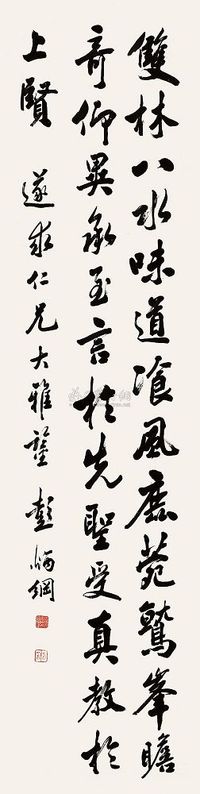 雙林八水味道飡風鹿菀鷲峯瞻
奇仰異承至言於先聖受真教於
上賢
遂求仁兄大雅鑒 彭炳綱